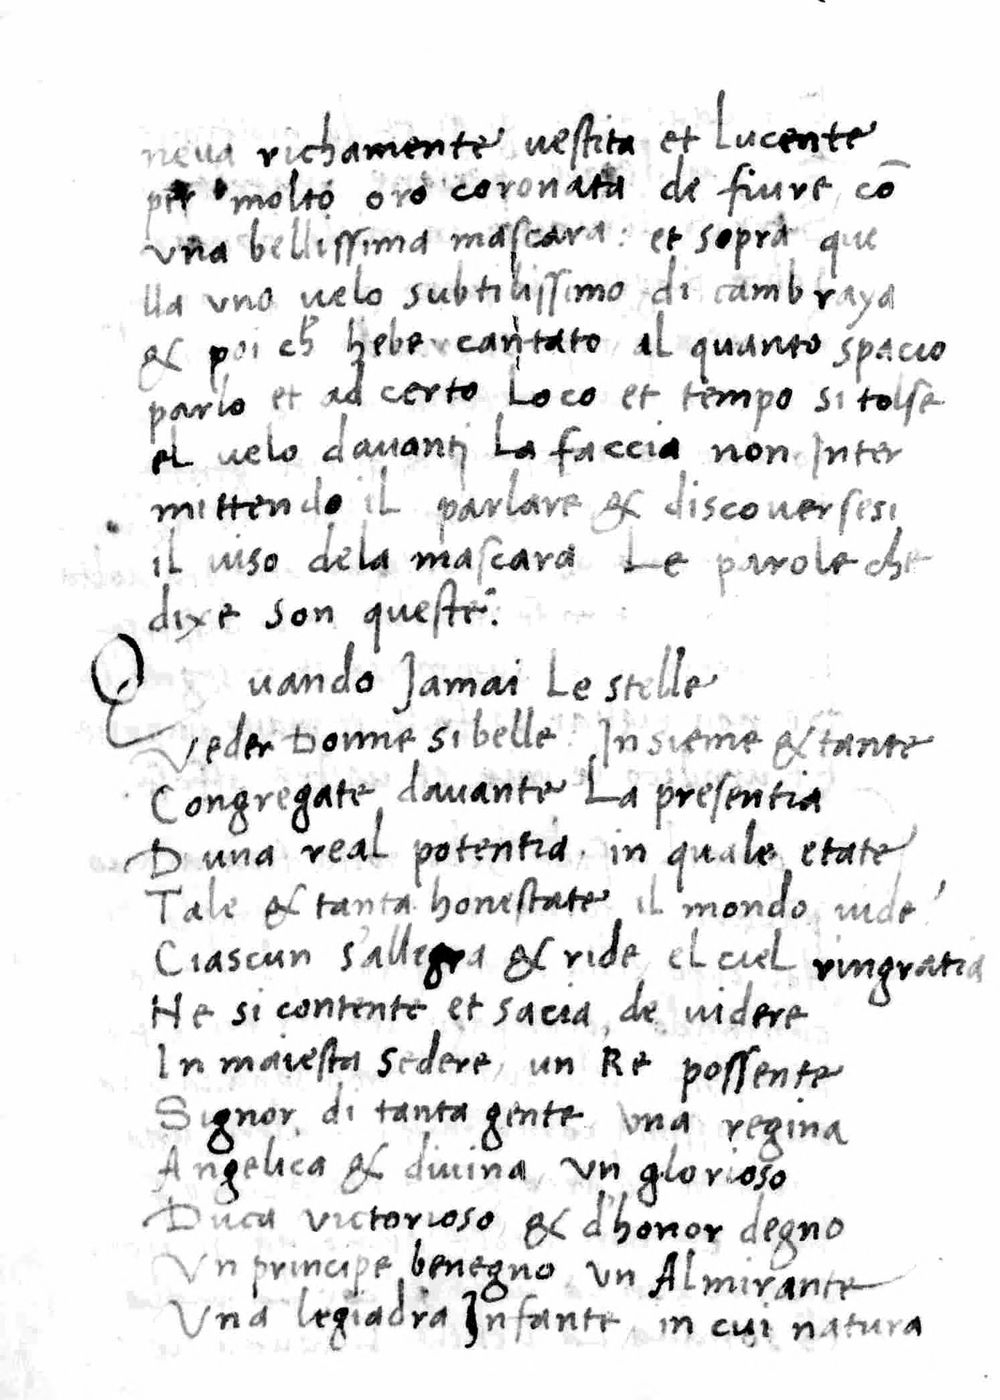 neua richamente uestita et Lucente
per molto oro coronata de fiure cō
vna bellissima mascara: et sopra que
lla vno uelo subtilissimo di cambraya
& poi ch̄ hebe cantato al quanto spacio
parlo et ad certo Loco et tempo si tolse
el uelo dauanti La faccia non Inter
mittendo il parlare & discouersesi
il uiso dela mascara Le parole che
dixe son queste:
Quando Jamai Le stelle
Veder Donne si belle Insieme & tante
Congregate dauante La presentia
D una real potentia. in quale etate
Tale & tanta honestate il mondo uide
Ciascun s'allegra & ride el ciel ringratia
He si contente et sacia de uidere
In maiesta sedere, un Re possente
Signor di tanta gente una regina
Angelica & diuina, vn glorioso
Duca victorioso & d'honor degno
Vn principe benegno, un Almirante
Vna legiadra Infante, in cui natura